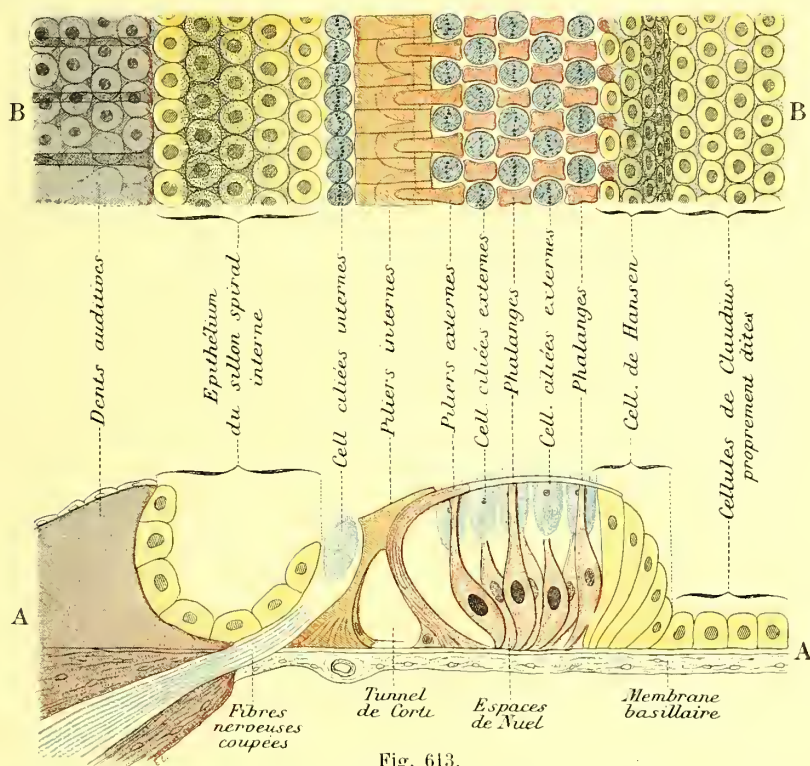 B
B
Dents auditives
Epithélium
du sillon spiral
interne
Cell ciliées internes
Piliers internes
Piliers externes
Cell ciliées externes
Phalanges
Cell. ciliées externes
Phalanges
Cell. de Hansen
Cellules de Claudius
proprement dites
A
A
Fibres
nerveuses
coupées
Tunnel
de Corti
Espaces
de Nuel
Membrane
basillaire
Fig. 613.